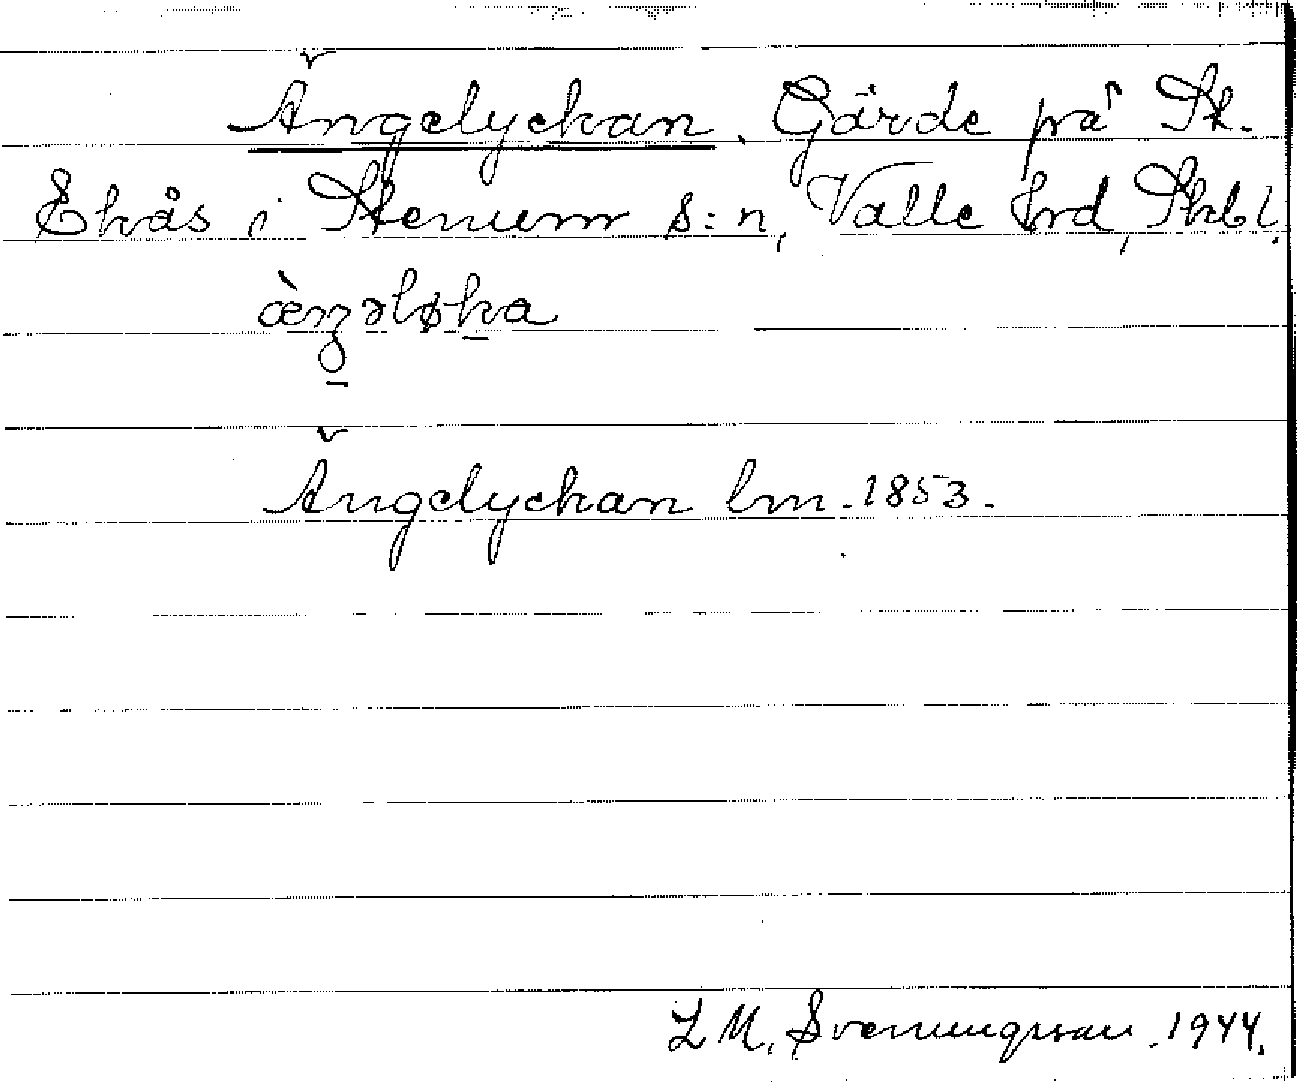 Ängelyckan. Gärde på St.
Ekås i Stenum s:n, Valle hrd, Skbl.
æ̀ŋəløka
Ängelyckan lm. 1853.
L M. Svenungsson. 1944.